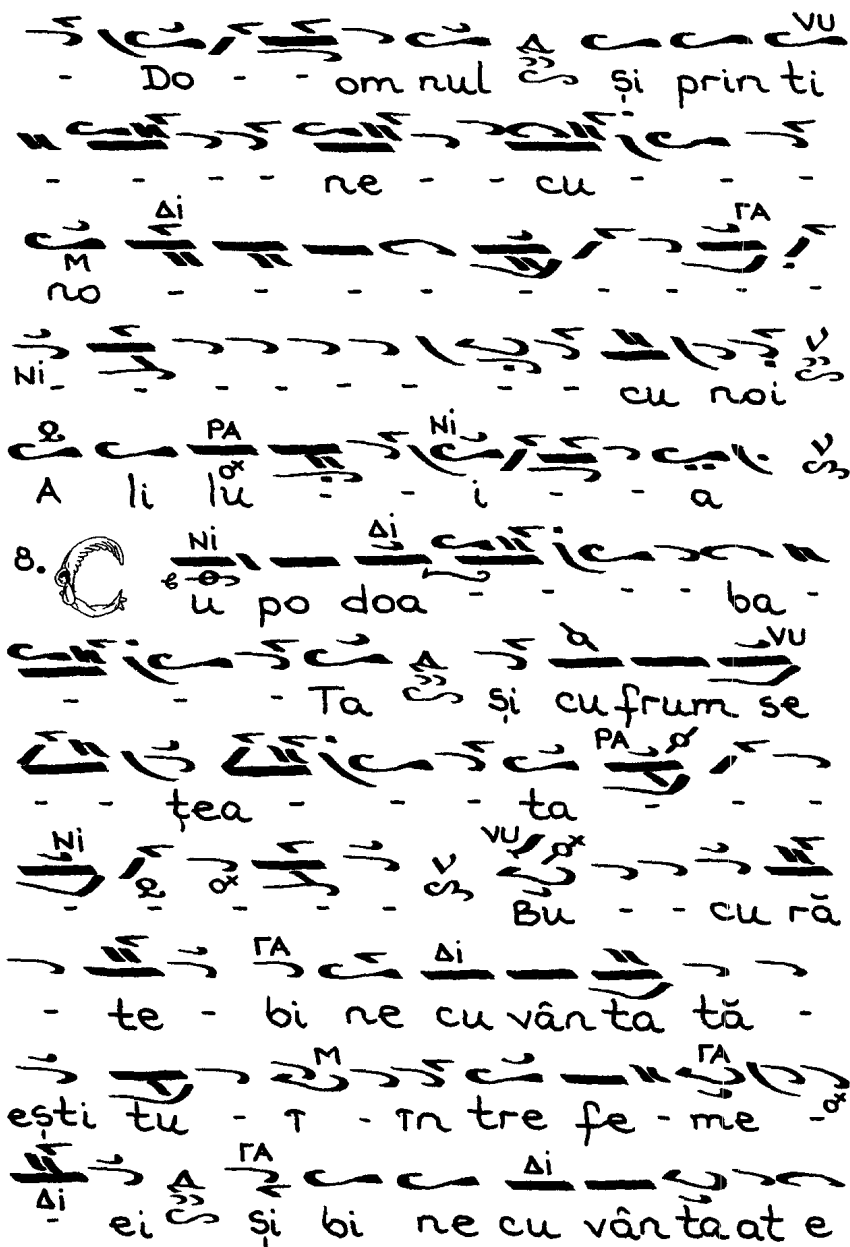 VU
- Do - - om nul și prin ti
- - - - ne - - cu - - -
Δi ΓA
M
no - - - - - - - -
Ni - - - - - - - cu noi
PA Ni
A li lu - - i - - a
8. Ni Δi
C u po doa - - - ba -
VU
- - - Ta și cu frum se
PA
- - țea - - - ta - - -
Ni VU
- - - - - Bu - - cu ră
ΓA Δi
- te - bi ne cu vân ta tă -
M ΓA
ești tu - î - în tre fe - me -
ΓA Δi
Δi
- ei și bi ne cu vân ta at e